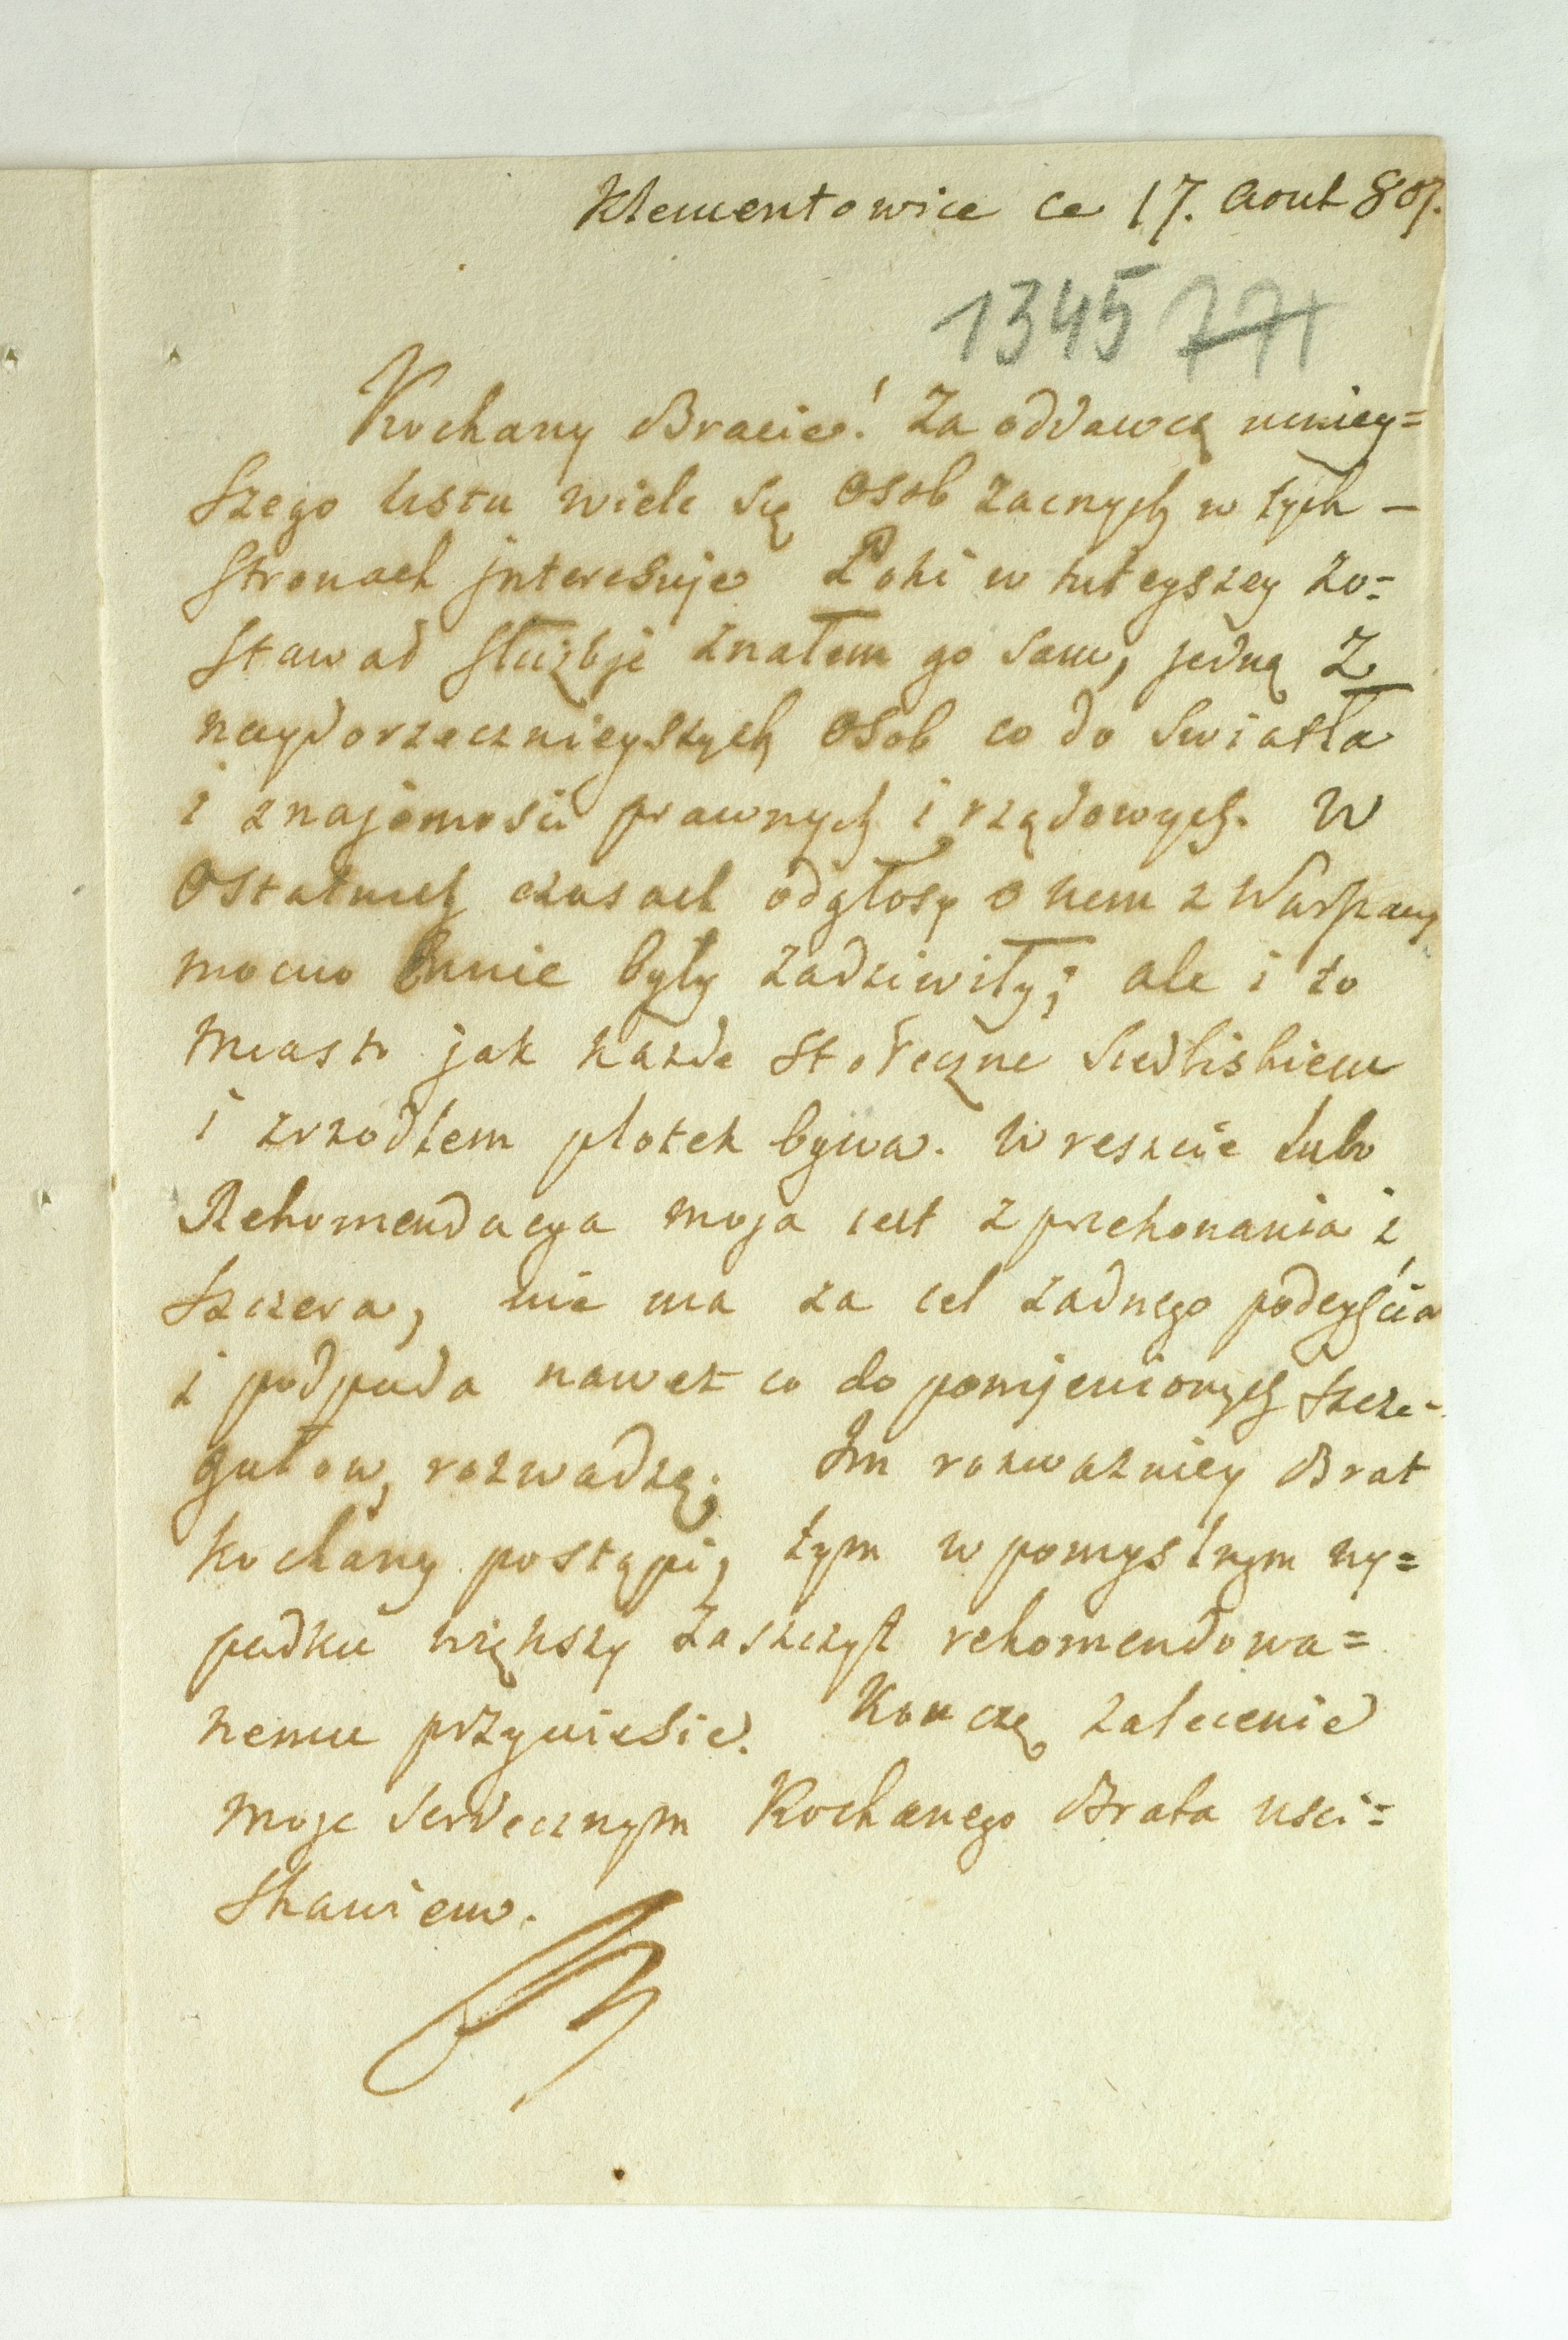 Klementowice ce 17. Aout 807.
1345 771
Kochany Bracie! Za oddawcą niniey=
szego listu wiele się osob zacnych w tych –
stronach jnteresuje Poki w tuteyszey zo=
stawał służbje znałem go sam, jedną z
naydorzecznieyszych osob co do swiatła
i znajomosci prawnych i rządowych. W
ostatnich czasach odgłosy o nem z Warszawy
mocno mnie były zadziwiły; ale i to
miasto jak każde stołeczne siedliskiem
i zrzodłem plotek bywa. W reszcie lubo
Rekomendacya moja iest z przekonania i
szczera, nie ma za cel żadnego podeyścia
i podpada nawet co do pomjenionych szcze-
gułow, rozwadze; Im rozwazniey Brat
kochany postąpi, tym w pomyslnym wy=
padku większy zaszczyt rekomendowa=
nemu przyniesie. Konczę zalecenie
moje serdecznym Kochanego Brata usci=
skaniem.